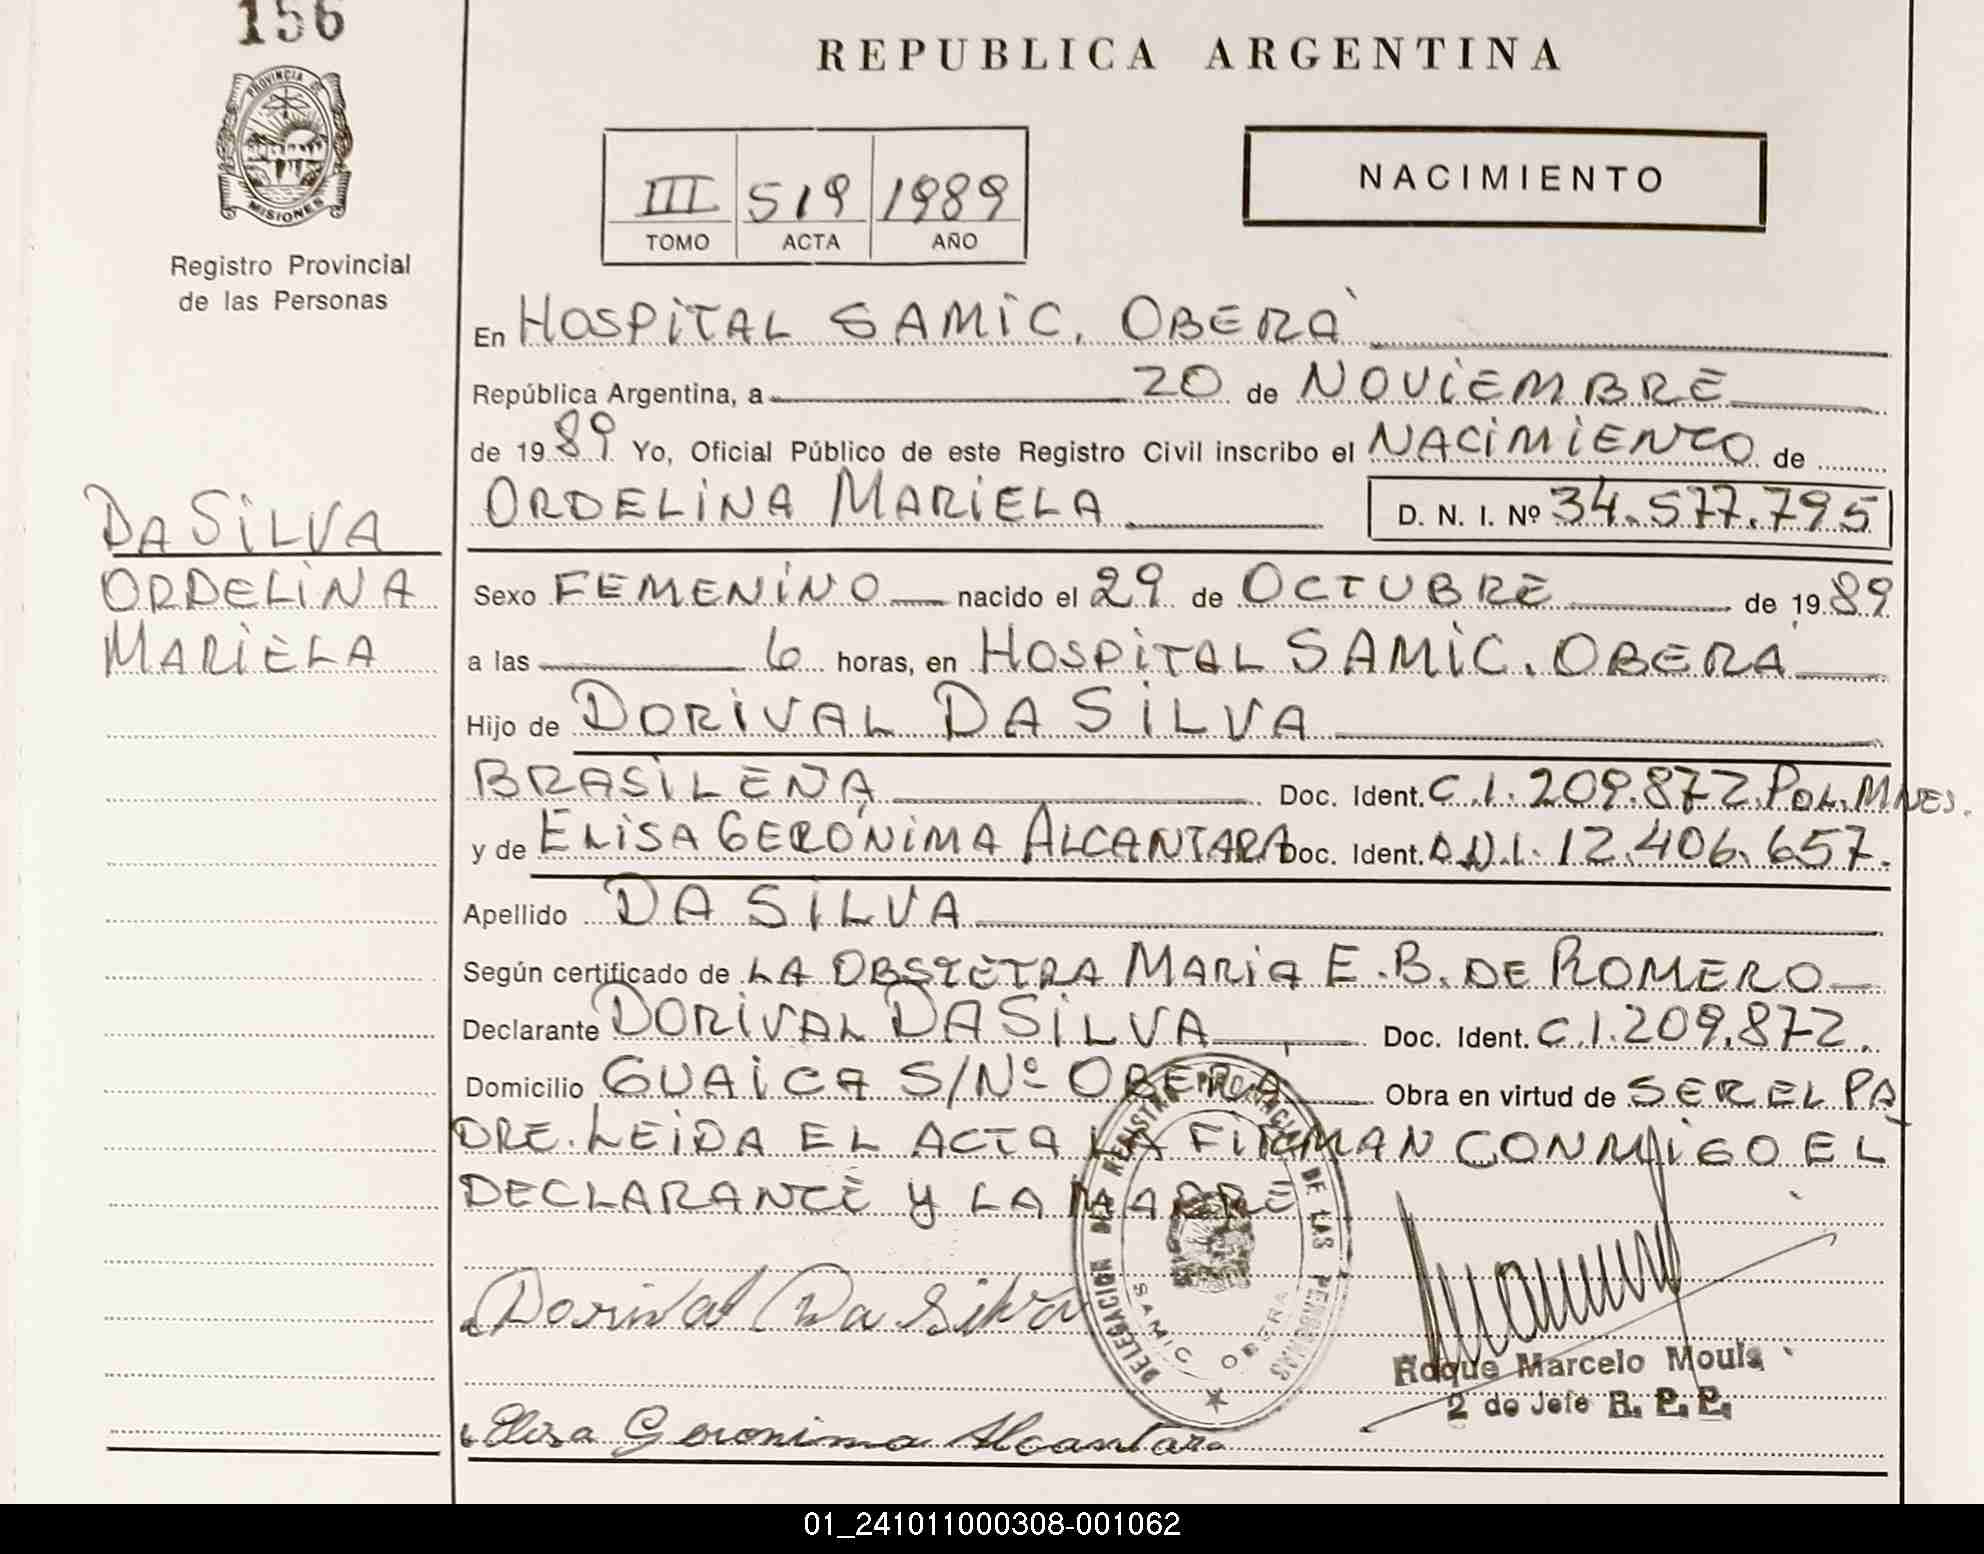 156
PROVINCIA DE
MISIONES
Registro Provincial
de las Personas
DA SILVA
ORDELINA
MARIELA
REPUBLICA ARGENTINA
III 519 1989
TOMO ACTA AÑO
NACIMIENTO
En HOSPITAL SAMIC. OBERÀ
República Argentina, a 20 de NOVIEMBRE
de 1989 Yo, Oficial Público de este Registro Civil inscribo el NACIMIENTO de
ORDELINA MARIELA D. N. I. Nº 34.577.795
Sexo FEMENINO nacido el 29 de OCTUBRE de 1989
a las 6 horas, en HOSPITAL SAMIC. OBERA
Hijo de DORIVAL DA SILVA
BRASILEÑA Doc. Ident. C.I. 209.872 POL. MNES.
y de ELISA GERÓNIMA ALCANTARA Doc. Ident. D.N.I. 12.406.657.
Apellido DA SILVA
Según certificado de LA OBSTETRA MARIA E. B. DE ROMERO
Declarante DORIVAL DA SILVA Doc. Ident. C.I. 209.872.
Domicilio GUAICA S/Nº OBERA Obra en virtud de SER EL PA
DRE. LEIDA EL ACTA LA FIRMAN CONMIGO EL
DECLARANTE Y LA MADRE
DELEGACION DEL REGISTRO PROVINCIAL DE LAS PERSONAS
SAMIC OBERA
Dorival Da Silva
Roque Marcelo Moula
2 do Jefe R. P. P.
Elisa Geronima Alcantara
01_241011000308-001062